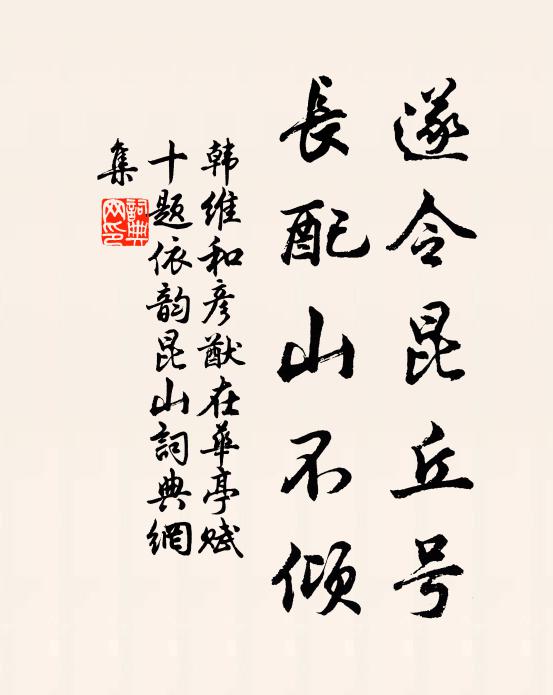 遂令昆丘号
長配山不倾
韩维和彦猷在華亭赋
十题依韵昆山詞典網
集
詞典
网印